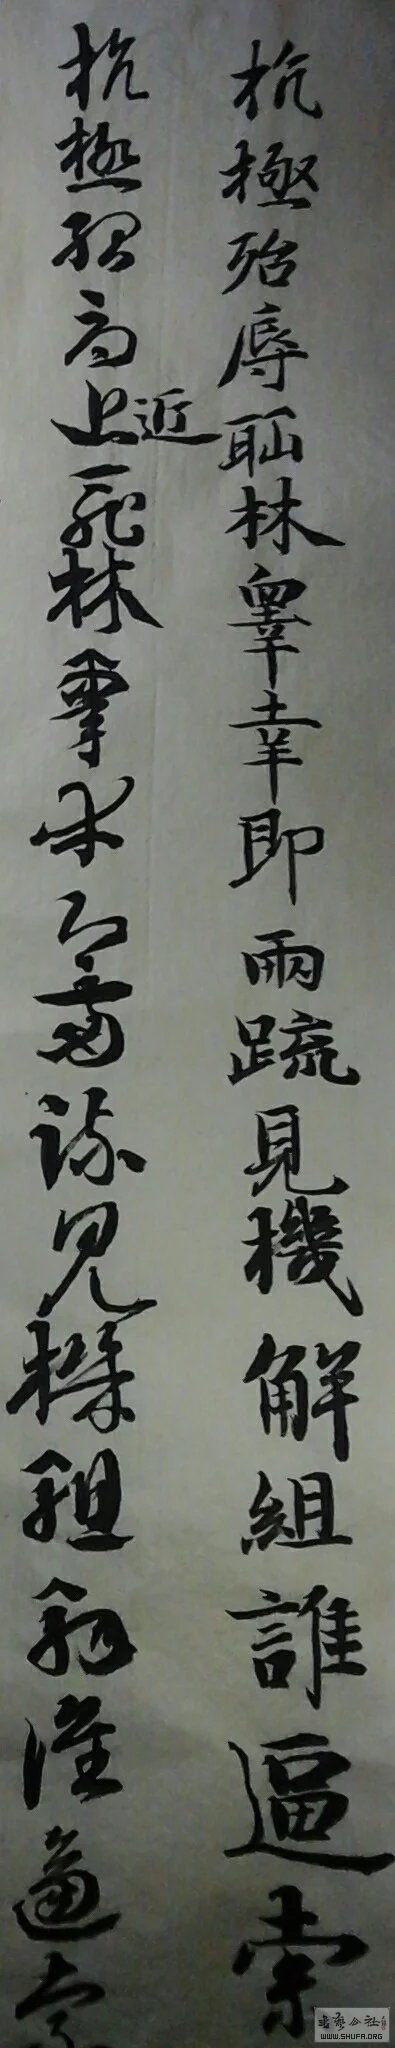 抗極殆辱近耻林皋幸即兩疏見機解組誰逼索
抗極殆辱近耻林皋幸即兩疏見機組解誰逼索
書藝公社
WWW.SHUFA.ORG